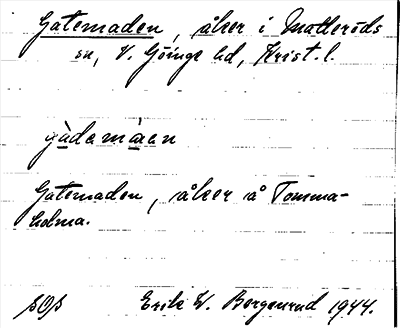 Gatemaden, åker i Matteröds
sn, V. Göinge hd, Krist. l.
gàdemàen
Gatemaden, åker å Tomma-
holma.
Erik W. Bergenrud 1944.